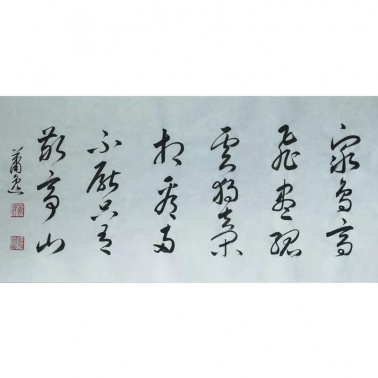 眾鳥高
飛盡孤
雲獨去閑
相看兩
不厭只有
敬亭山
蕭逸